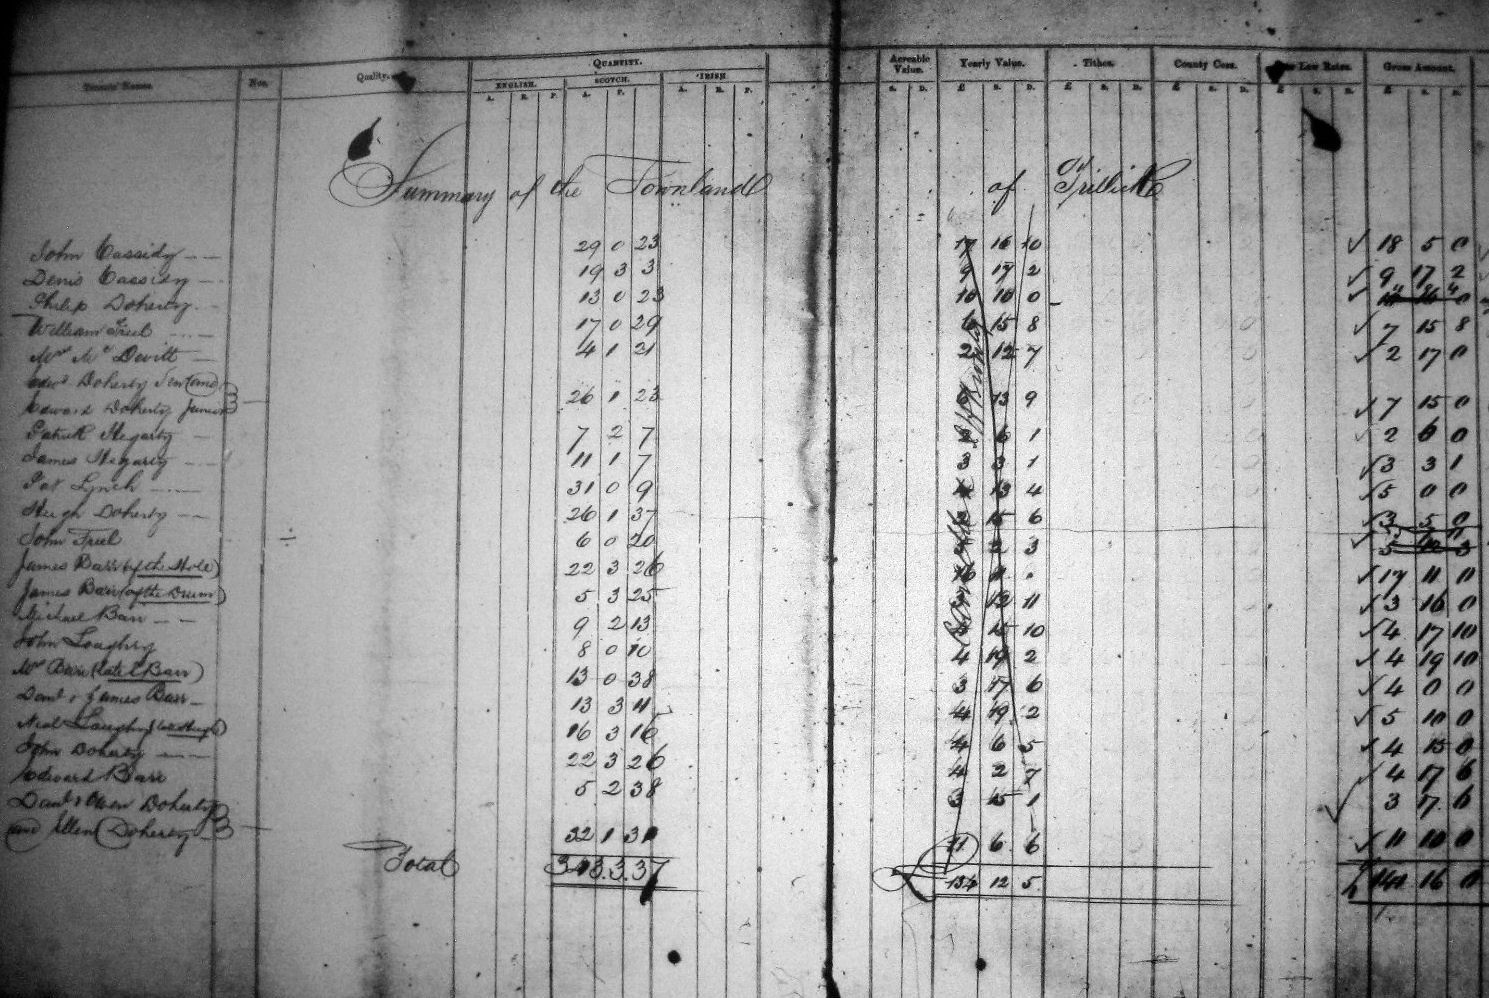 Tenants' Names. Nos. Quality. QUANTITY. Acreable Value. Yearly Value. Tithes. County Cess. Poor Law Rates. Gross Amount.
ENGLISH. SCOTCH. IRISH
A. R. P. A. P. A. R. P. S. D. £ S. D. £ S. D. £ S. D. £ S. D. £ S. D.
Summary of the Townland of Trillick
John Cassidy 29 0 23 17 16 10 18 5 0
Denis Cassidy 19 3 3 9 17 2 9 17 2
Philip Doherty 13 0 23 10 10 0
William Friel 17 0 29 6 15 8 7 15 8
Mrs Mc Devitt 4 1 21 2 12 7 2 17 0
Edwd Doherty Senr (and)
Edward Doherty Junior 26 1 23 13 9 7 15 0
Patrick Hegarty 7 2 7 6 1 2 6 0
James Hegarty 11 1 7 3 3 1 3 3 1
Pat Lynch 31 0 9 13 4 5 0 0
Hugh Doherty 26 1 37 15 6 3 5 0
John Friel 6 0 20 2 3
James Barr (of the Hole) 22 3 26 17 11 0
James Barr (of the Drum) 5 3 25 12 11 3 16 0
Michael Barr 9 2 13 15 10 4 17 10
John Loughry 8 0 10 4 19 2 4 19 10
Mrs Barr (late E Barr) 13 0 38 3 17 6 4 0 0
Danl & James Barr 13 3 11 4 19 2 5 10 0
Neal Loughry (late Hugh) 16 3 16 4 6 5 4 15 0
John Doherty 22 3 26 4 2 7 4 17 6
Edward Barr 5 2 38 3 15 1 3 17 6
Danl & Owen Doherty
and Ellen Doherty 32 1 31 11 6 6 11 10 0
Total 343. 3. 37 £ 134 12 5 £ 141 16 0